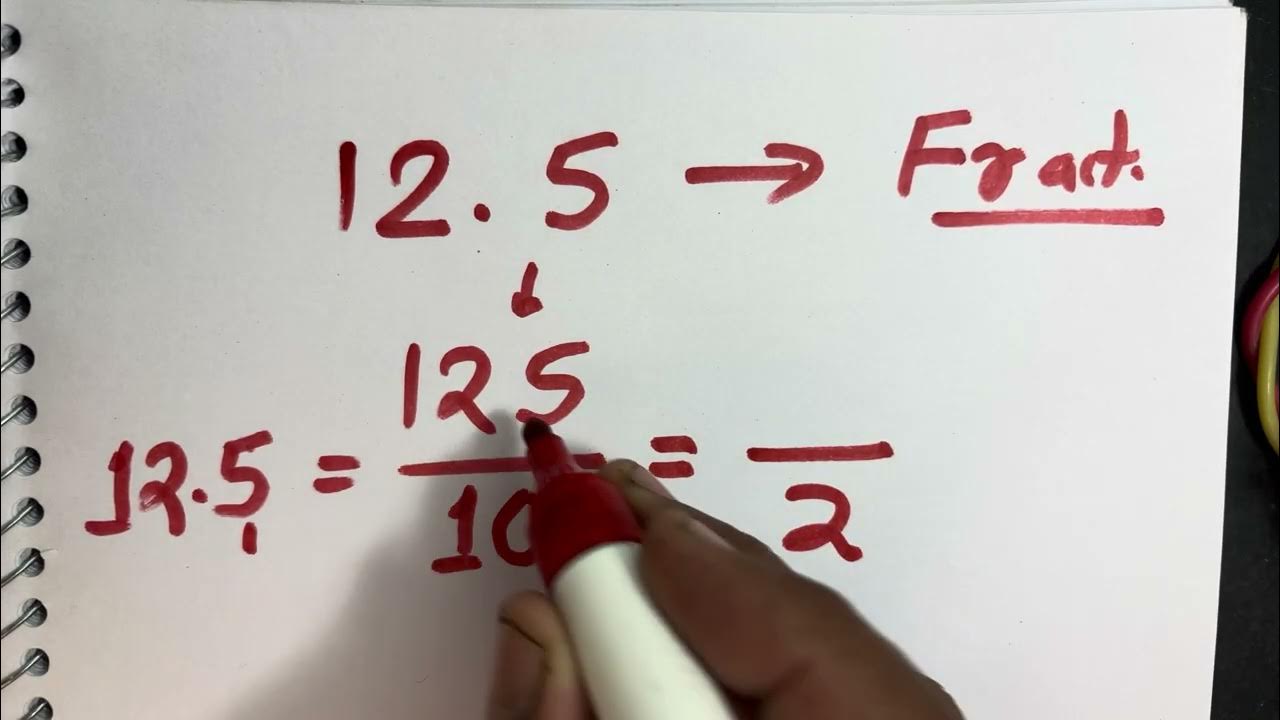 12.5 → Fract.
↓
12.5 = 125/10 = /2